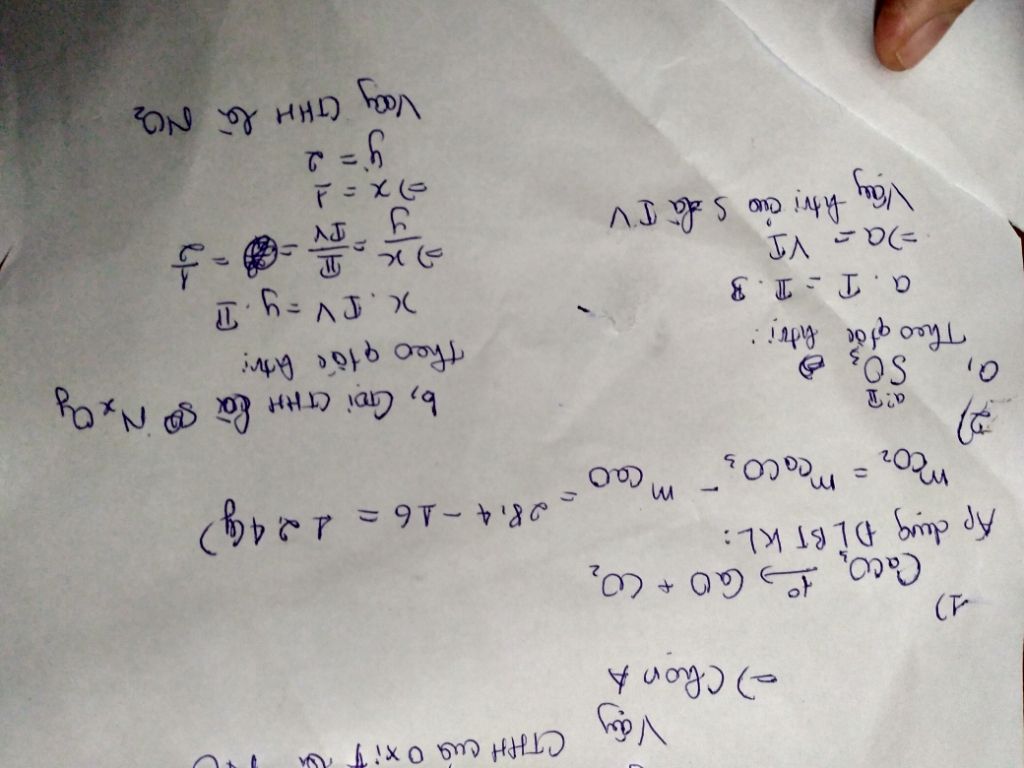 CTHH của oxit là
Vậy
=> Chọn A
1)
CaCO₃ —t°→ CaO + CO₂
Áp dụng DLBTKL:
mCO₂ = mCaCO₃ - mCaO = 28,4 - 16 = 12 4(g)
2)
a II
a, SO₃
Theo qtắc htrị:
a. I = II. 3
=> a = VI
Vậy htrị của S là IV
b, Gọi CTHH là NxOy
Theo qtắc htrị
x. IV = y. II
=> x/y = II/IV = = 1/2
=> x = 1
y = 2
Vậy CTHH là NO₂